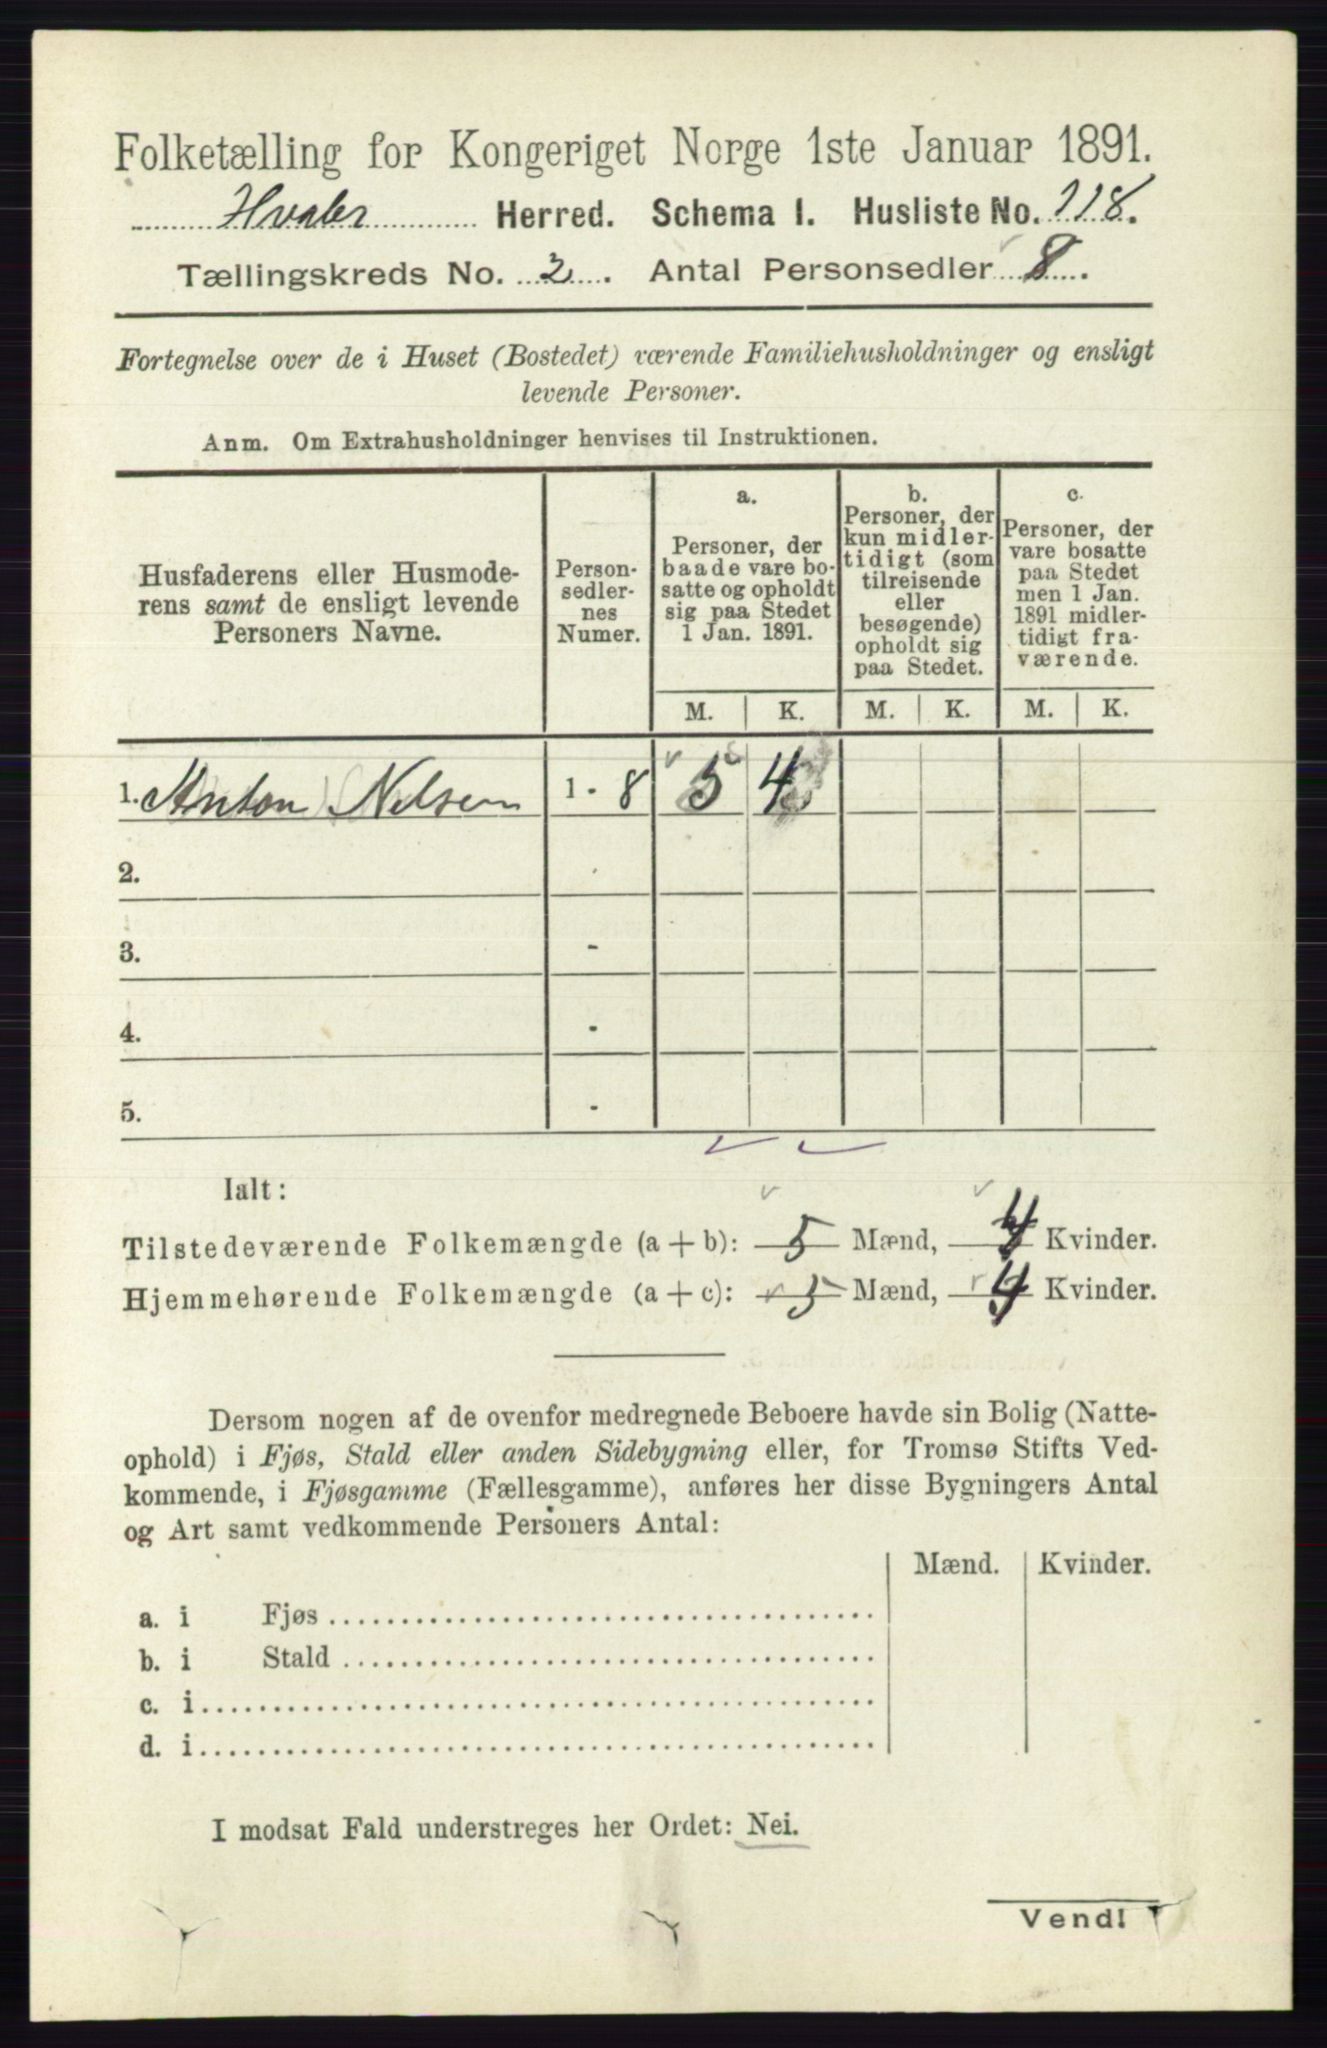 Folketælling for Kongeriget Norge 1ste Januar 1891.
Hvaler Herred. Schema I. Husliste No. 118.
Tællingskreds No. 2. Antal Personsedler 8.
Fortegnelse over de i Huset (Bostedet) værende Familiehusholdninger og ensligt
levende Personer.
Anm. Om Extrahusholdninger henvises til Instruktionen.
Husfaderens eller Husmode-
rens samt de ensligt levende
Personers Navne.
Person-
sedler-
nes
Numer.
a.
Personer, der
baade vare bo-
satte og opholdt
sig paa Stedet
1 Jan. 1891.
b.
Personer, der
kun midler-
tidigt (som
tilreisende
eller
besøgende)
opholdt sig
paa Stedet.
c.
Personer, der
vare bosatte
paa Stedet
men 1 Jan.
1891 midler-
tidigt fra-
værende.
M. K. M. K. M. K.
1. Anton Nelsen 1 - 8 5 4
2.
3. -
4. -
5. -
Ialt:
Tilstedeværende Folkemængde (a + b): 5 Mænd, 4 Kvinder.
Hjemmehørende Folkemængde (a + c): 5 Mænd, 4 Kvinder.
Dersom nogen af de ovenfor medregnede Beboere havde sin Bolig (Natte-
ophold) i Fjøs, Stald eller anden Sidebygning eller, for Tromsø Stifts Ved-
kommende, i Fjøsgamme (Fællesgamme), anføres her disse Bygningers Antal
og Art samt vedkommende Personers Antal:
Mænd. Kvinder.
a. i Fjøs
b. i Stald
c. i
d. i
I modsat Fald understreges her Ordet: Nei.
Vend!